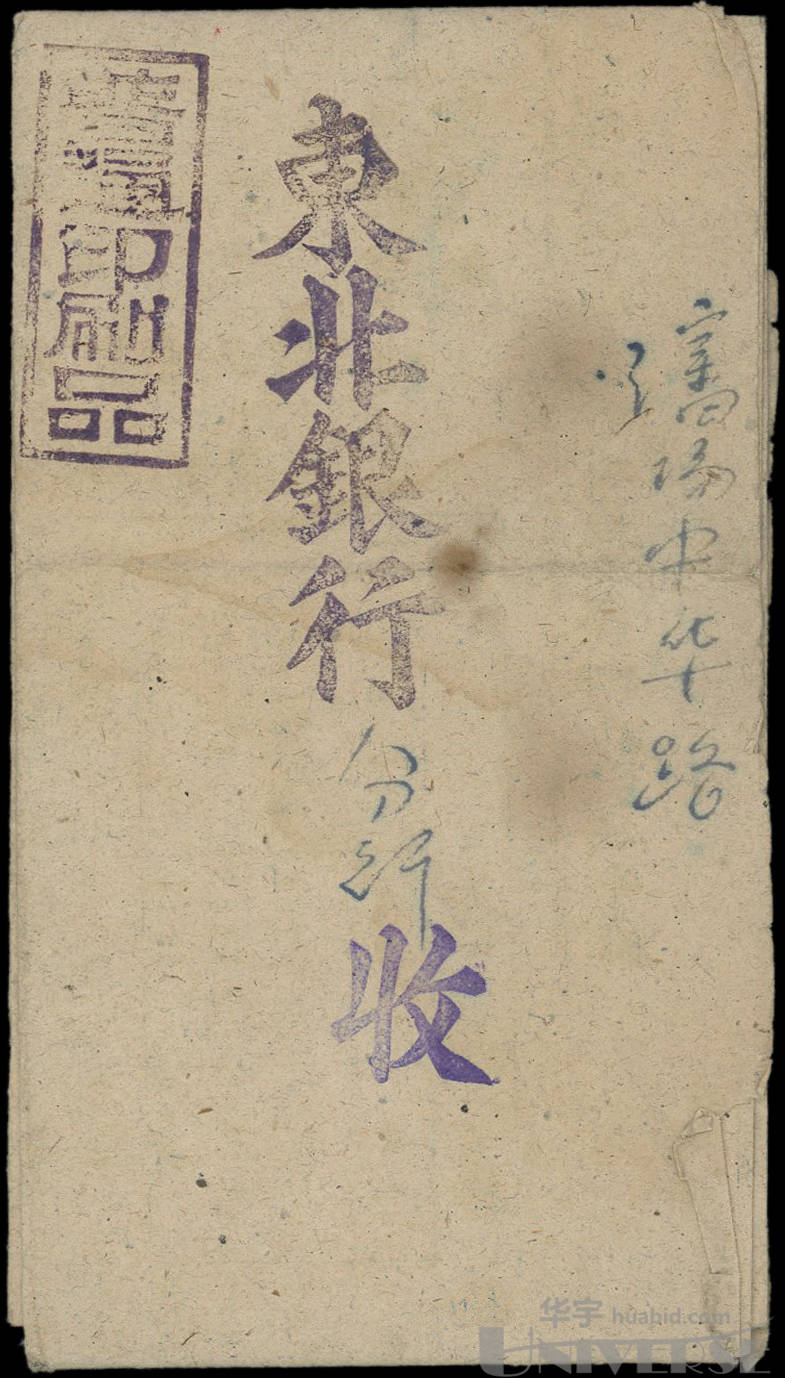 瀋陽中华路
東北銀行分行收
印刷品
华宇 huabid.com
UNIVERSE